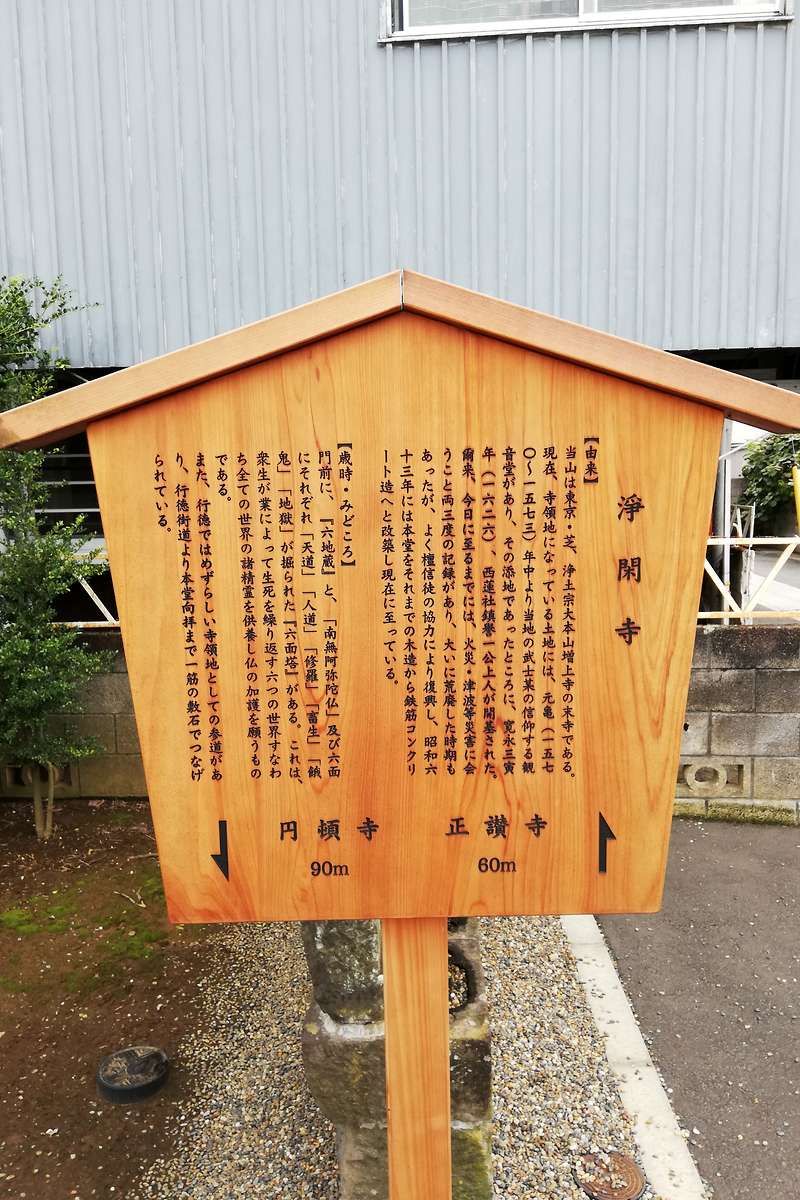 淨閑寺
【由来】
当山は東京・芝、浄土宗大本山増上寺の末寺である。
現在、寺領地になっている土地には、元亀（一五七
〇～一五七三）年中より当地の武士某の信仰する観
音堂があり、その添地であったところに、寛永三寅
年（一六二六）、西蓮社鎮誉一公上人が開基された。
爾来、今日に至るまでには、火災・津波等災害に会
うこと両三度の記録があり、大いに荒廃した時期も
あったが、よく檀信徒の協力により復興し、昭和六
十三年には本堂をそれまでの木造から鉄筋コンクリ
ート造へと改築し現在に至っている。
【歳時・みどころ】
門前に、『六地蔵』と、「南無阿弥陀仏」及び六面
にそれぞれ「天道」「人道」「修羅」「畜生」「餓
鬼」「地獄」が掘られた『六面塔』がある。これは、
衆生が業によって生死を繰り返す六つの世界すなわ
ち全ての世界の諸精霊を供養し仏の加護を願うもの
である。
また、行徳ではめずらしい寺領地としての参道があ
り、行徳街道より本堂向拝まで一筋の敷石でつなげ
られている。
正讃寺
60m
円頓寺
90m